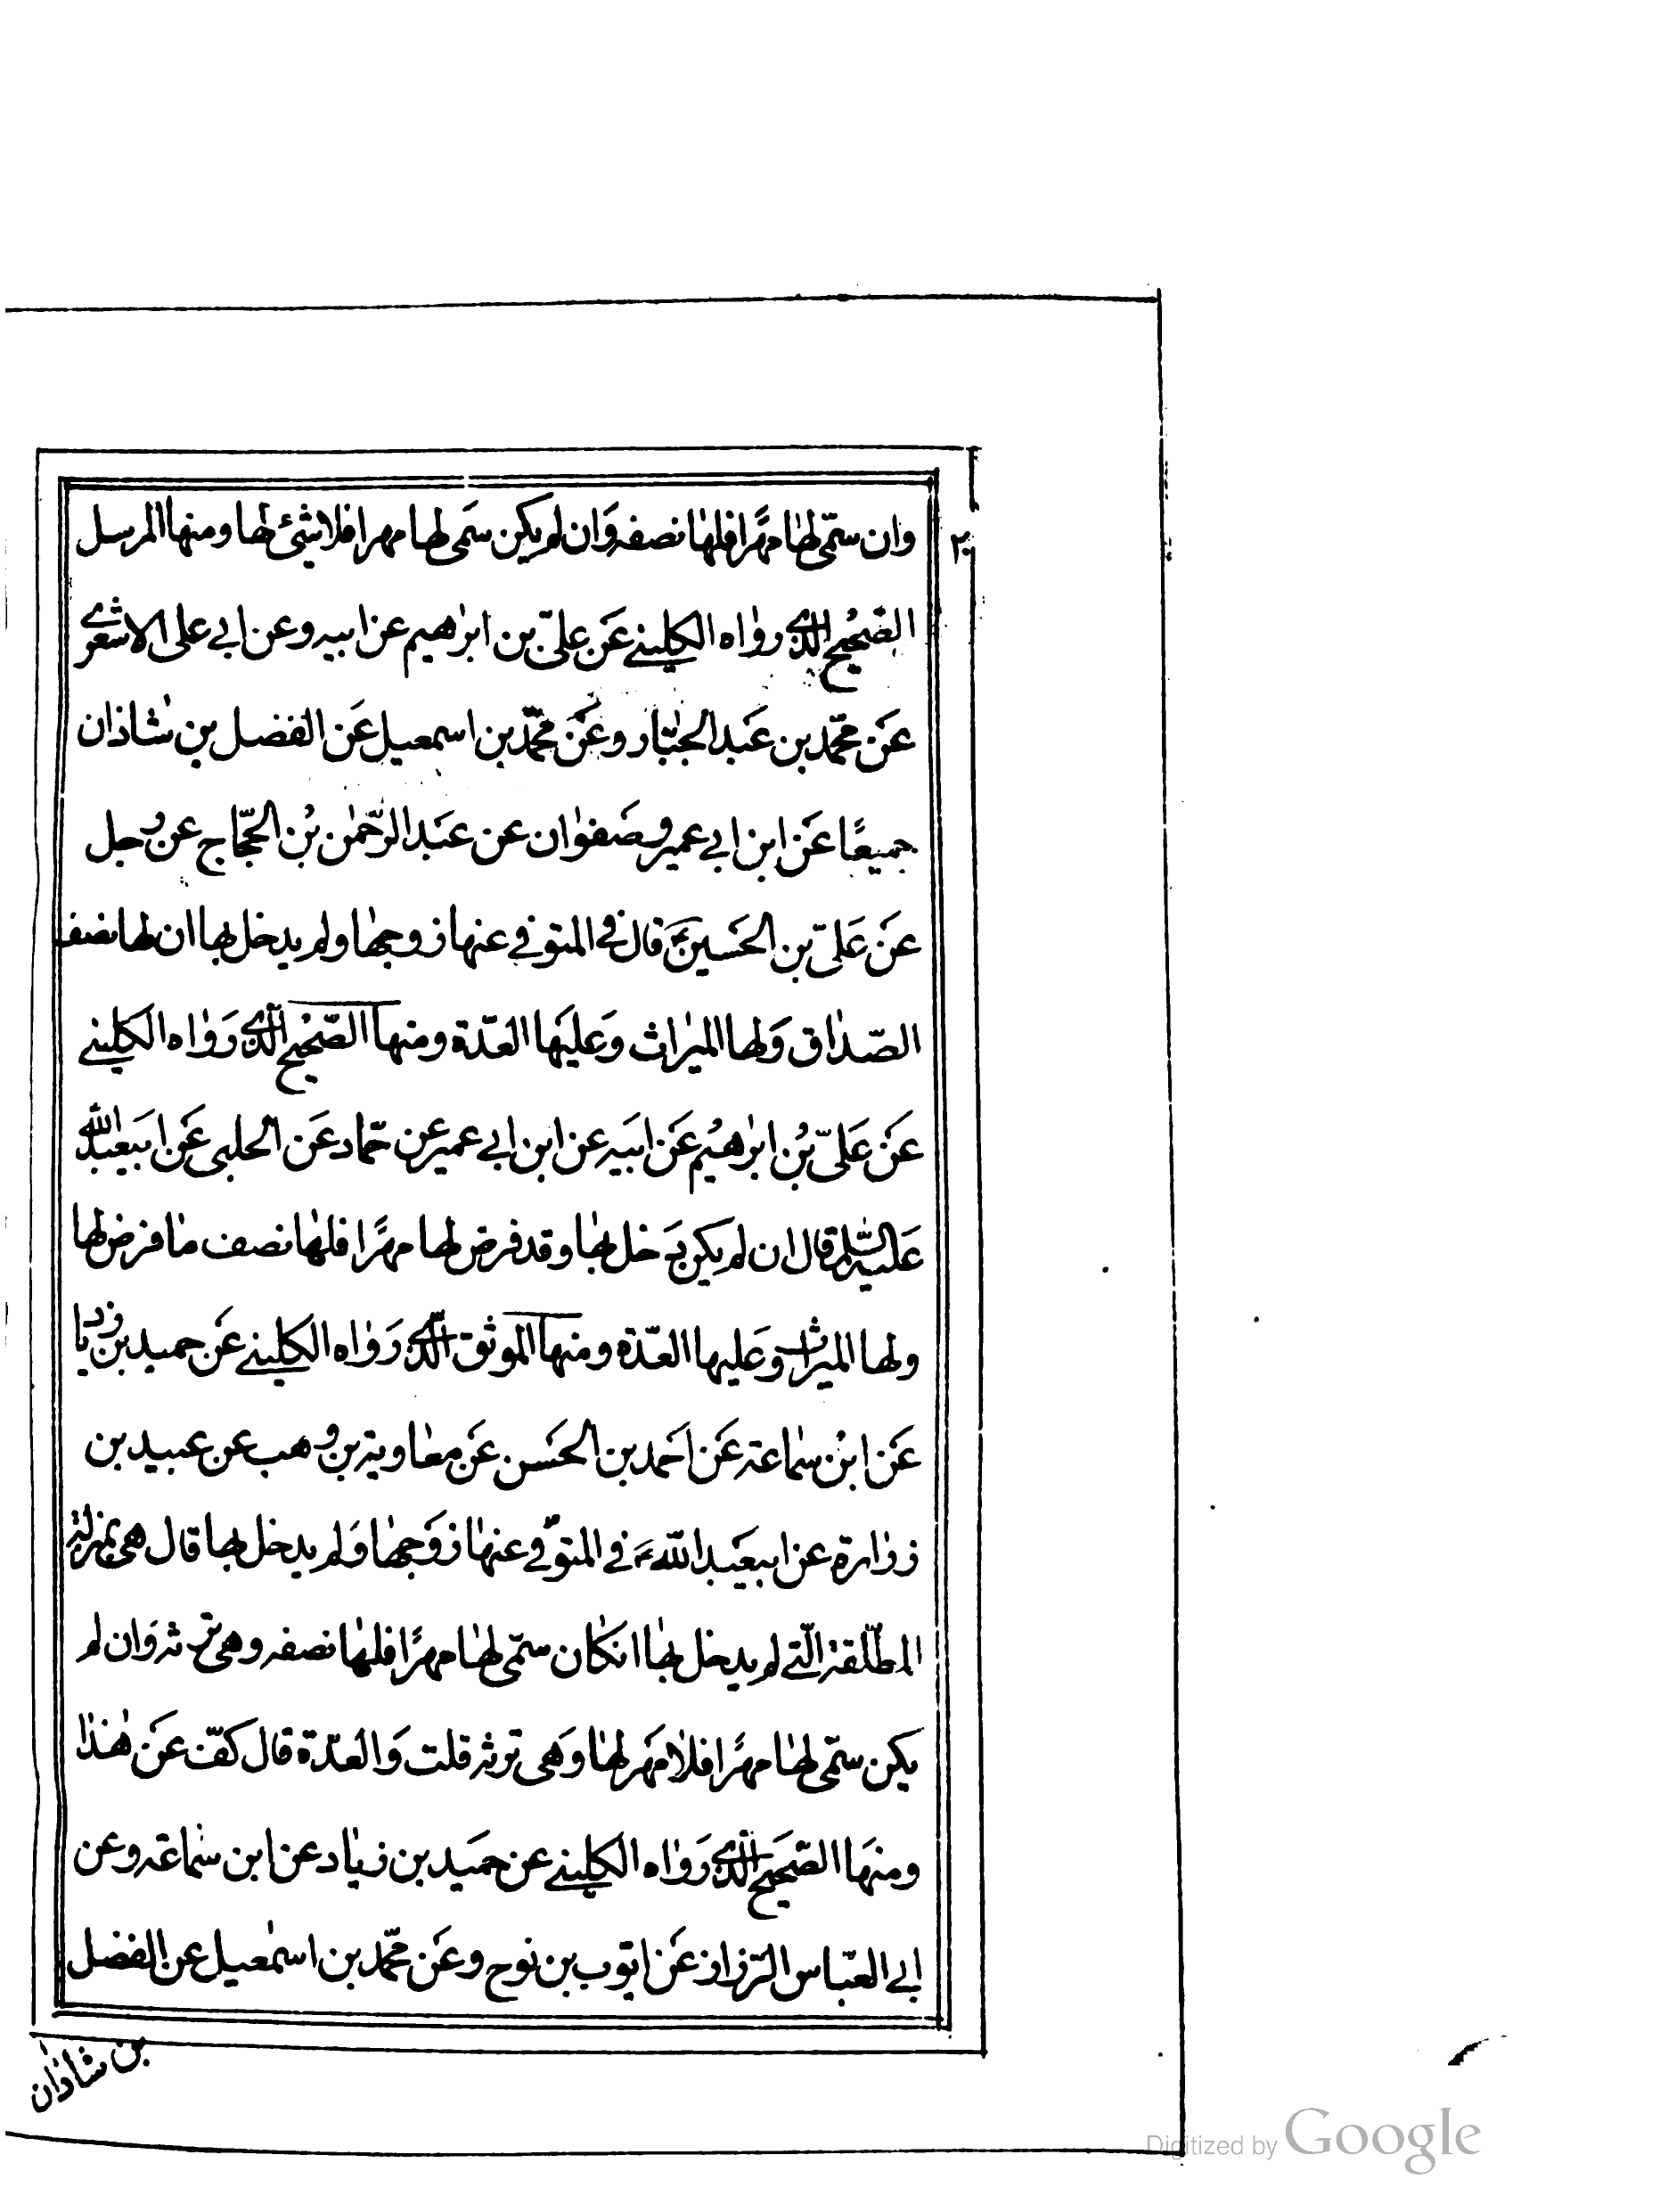 وان سمّى لها مهرًا فلها نصفه وان لم يكن سمى لها مهرا فلا شئ لها ومنها المرسل
٢
الصّحيح الّذى رواه الكلينے عن علىّ بن ابرٰهيم عن ابيه وعن ابي على الاشعرى
عن محمّد بن عبد الجبّار وعن محمّد بن اسمعيل عن الفضل بن شاذان
جميعًا عن ابن ابي عمير وصفوان عن عبد الرّحمٰن بن الحجّاج عن رجل
عن علىّ بن الحسين ع قال في المتوفي عنها زوجها ولم يدخل بها ان لها نصف
الصّداق ولها الميراث وعليها العدّة ومنها الصّحيح الّذى رواه الكلينے
عن علىّ بن ابرٰهيم عن ابيه عن ابن ابي عمير عن حمّاد عن الحلبى عن ابيعبد الله
عليه السّلم قال ان لم يكن دخل بها وقد فرض لها مهرًا فلها نصف ما فرض لها
ولها الميراث وعليها العدّة ومنها الموثق الّذى رواه الكلينے عن حميد بن زياد
عن ابن سماعة عن احمد بن الحسن عن معاوية بن وهب عن عبيد بن
زرارة عن ابيعبد اللّه ع في المتوفّي عنها زوجها ولم يدخل بها قال هى بمنزلة
المطلّقة الّتے لم يدخل بها انكان سمّى لها مهرًا فلها نصفه وهى ترثه وان لم
يكن سمّى لها مهرًا فلا مهر لها وهى ترثه قلت والعدّة قال كفّ عن هٰذا
ومنها الصّحيح الّذى رواه الكلينے عن حميد بن زياد عن ابن سماعة وعن
ابي العبّاس الرّزاز عن ايّوب بن نوح وعن محمّد بن اسمٰعيل عن الفضل
بن شاذان
Digitized by Google